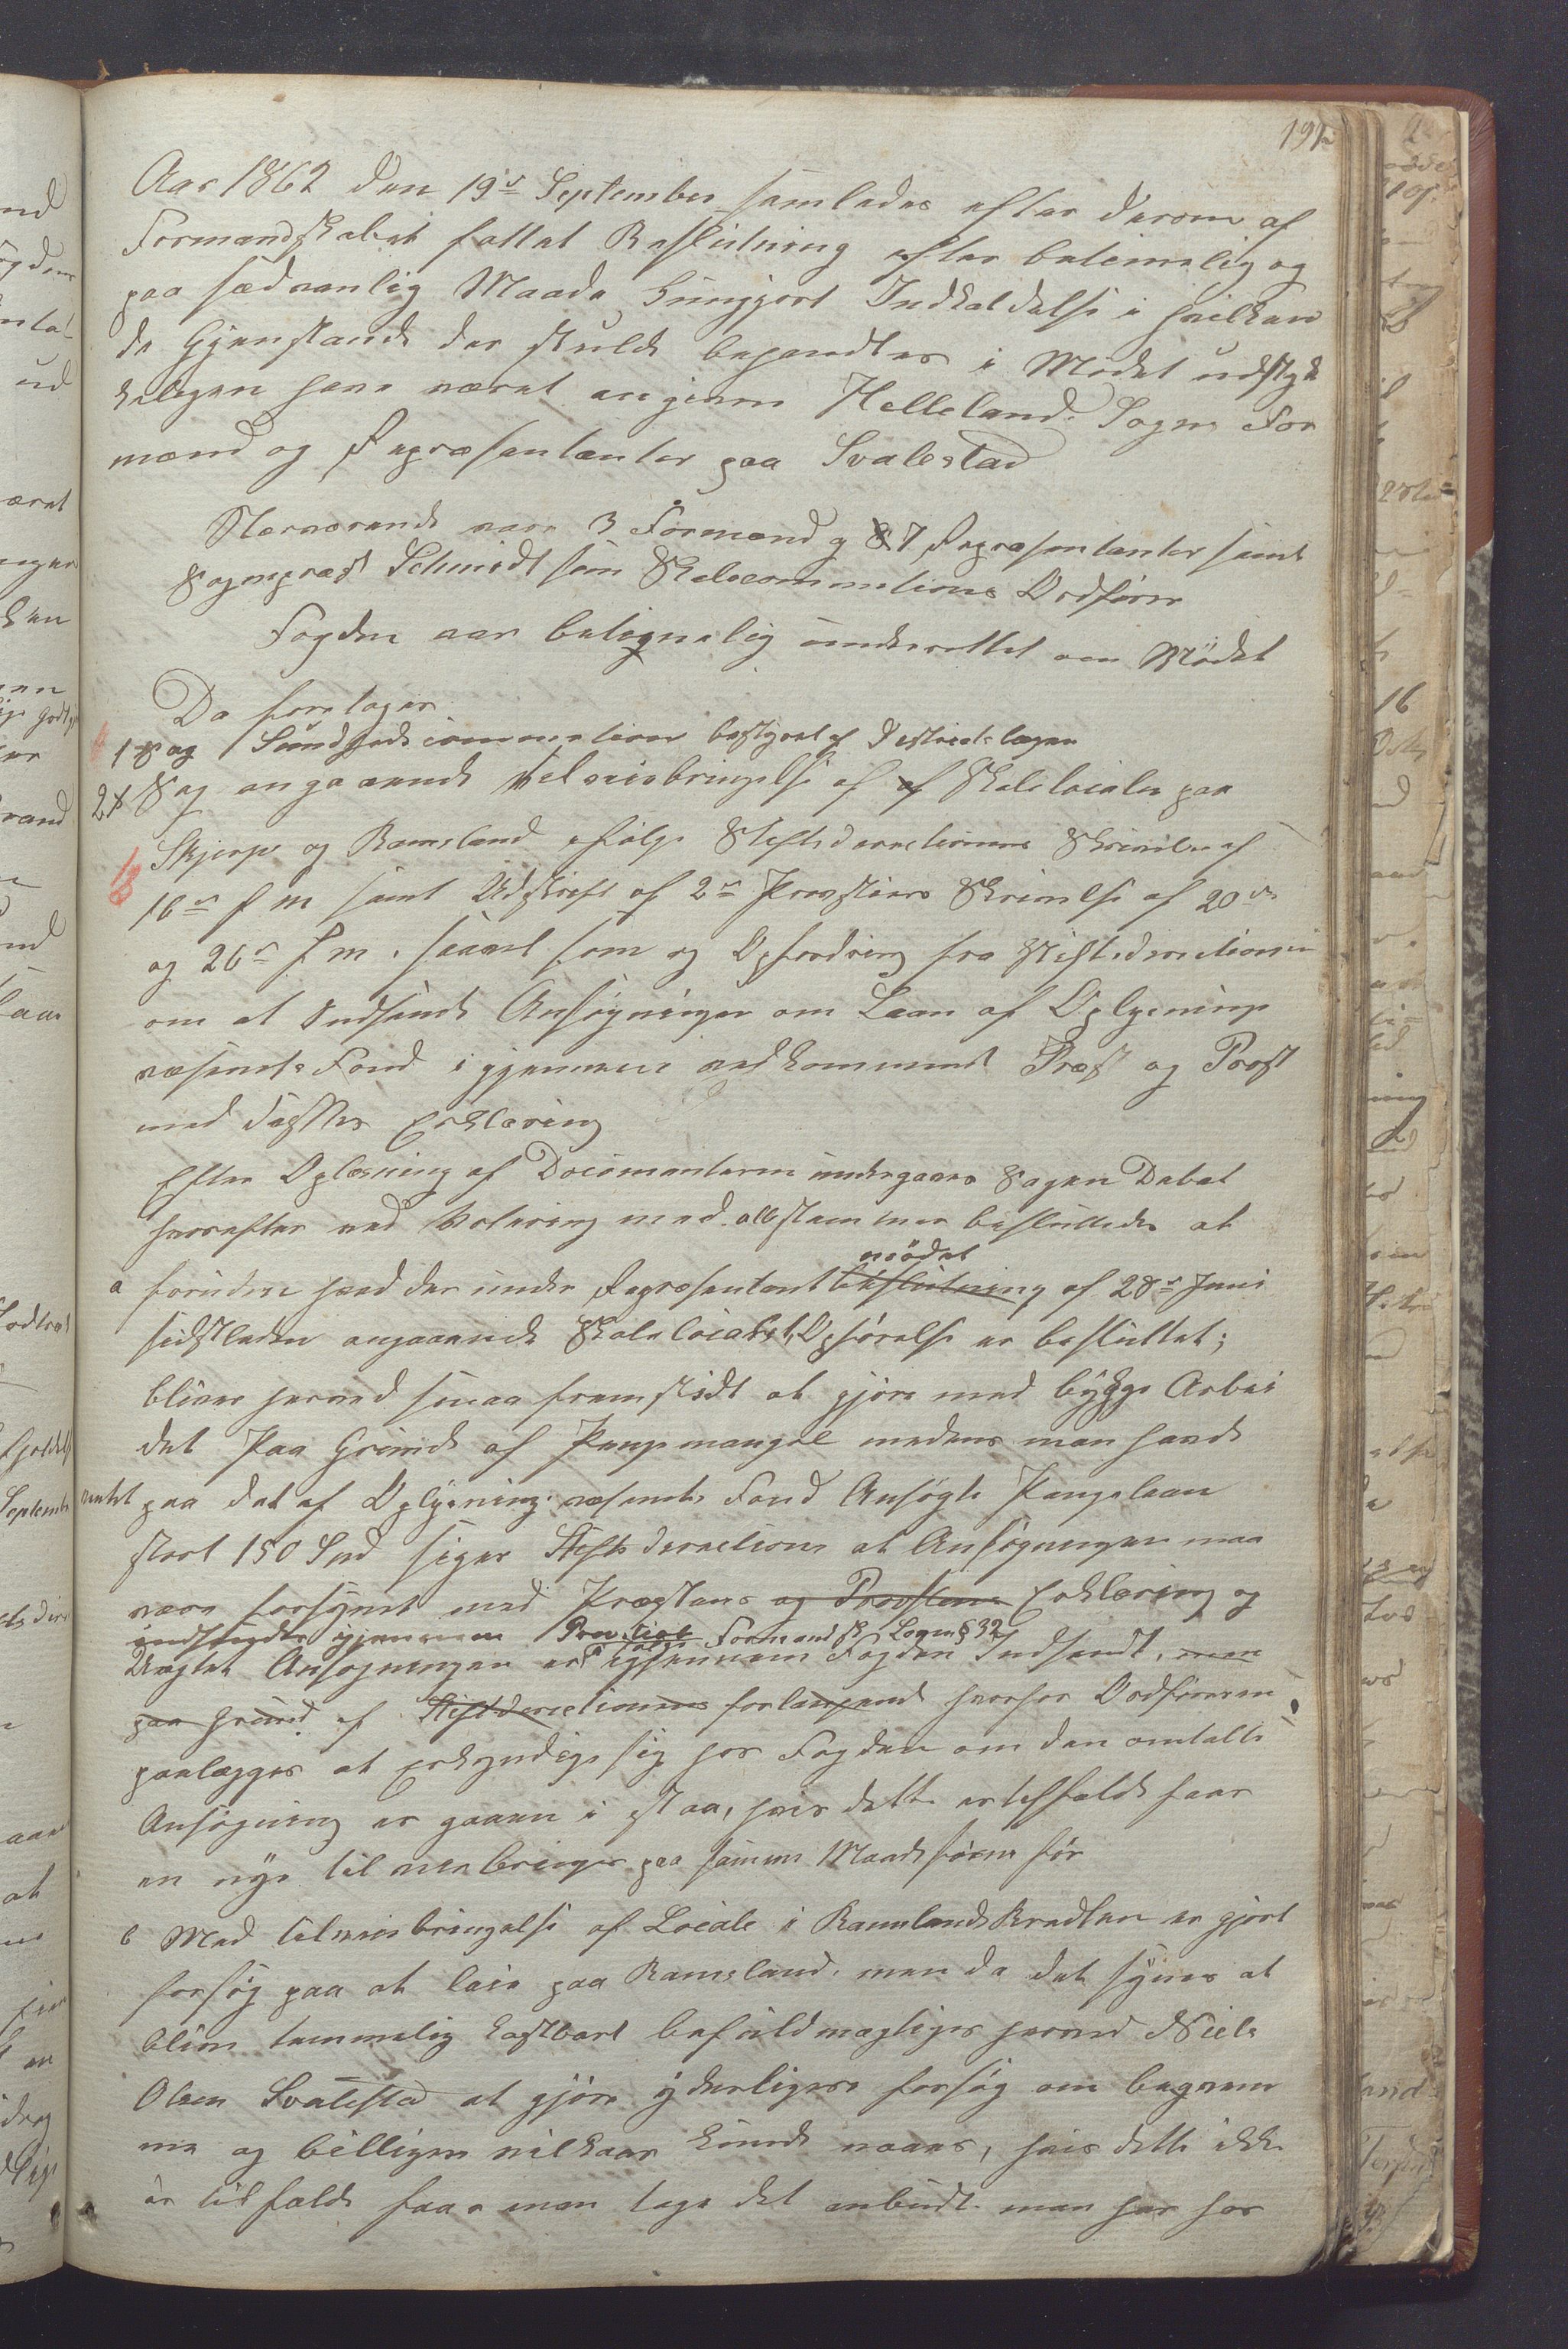 191a
Aar 1862 den 19de September samledes efter derom af
Formandskabet fattet Beslutning efter betimelig og
paa sædvanlig Maade kungjort Indkaldelse i hvilken
de Gjenstande der skulde behandles i Mødet udtryk
keligen have været angivne Hellelands Sogns For
mænd og Repræsentanter paa Svalestad
Nærværende vare 3 Formænd og 7 Repræsentanter samt
Sognepræst Schmidt som Skolecommitions Ordfører
Fogden var betignelig underrettet om Mödet
Da foretoges
1 Sag Sundhedscommition bestyret af Districtslægen
2 Sag angaaende tilveiebringelse af af Skolelocaler paa
Skjerpe og Ramsland ifølge Stiftsdirectionens Skrivelse af
16de f m samt Udskrift af 2de Provstiers Skrivelse af 20de
og 26de f m. saavel som og Opfordring fra Stiftsdirectionen
om at Indsende Ansøgninger om Laan af Oplysnings
væsenets Fond igjennem vedkommende Præst og Provst
med disses Erklæring
Efter Oplæsning af Documenterne undergaves Sagen Debat
hvorefter ved Votering med alle stemmer besluttedes at
mödet
a foruden hvad der under Repræsentant beslutning af 28de Juni
sidstleden angaaende Skolelocalets Opförelse er besluttet;
bliver herved smaa fremskridt at gjøre med bygge Arbei
det Paa Grund af Penge mangel medens man havde
ventet paa det af Oplysningsvæsenets Fond Ansøgte Pengelaan
stort 150 Spd siger Stiftsdirection at Ansøgningen maa
være forsynet med Præstens og Provstens Erklæring og
indsendes igjennem Provstiet Formandsk Loven § 32
Uagtet Ansøgningen er ifølge igjennem Fogden Indsendt, men
paa Grund af Stiftdirectionens forlangende hvorfor Ordføreren
paalægges at erkyndige sig hos Fogden om den omtalte
Ansøgning er gaaen i staa, hvis dette er tilfælde faar
en nye tilveiebringes paa samme Maade som før
b Med tilveiebringelse af Locale i Ramslands Kredsen er gjort
forsøg paa at leie paa Ramsland. men da det synes at
blive temmelig kostbart befuldmægtiges herved Niels
Olsen Svalestad at gjøre yderligere forsøg om beqvem
me og billigere vilkaar kunde naaes, hvis dette ikke
er tilfælde faar man tage det anbudt man har hos